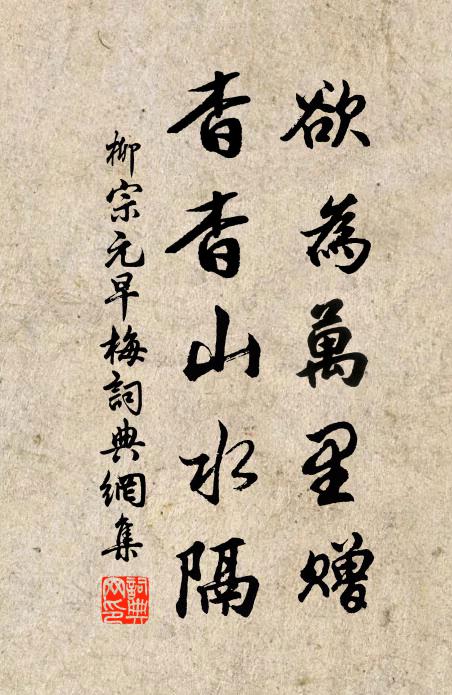 欲為萬里贈
杳杳山水隔
柳宗元早梅詞典網集
詞典網印